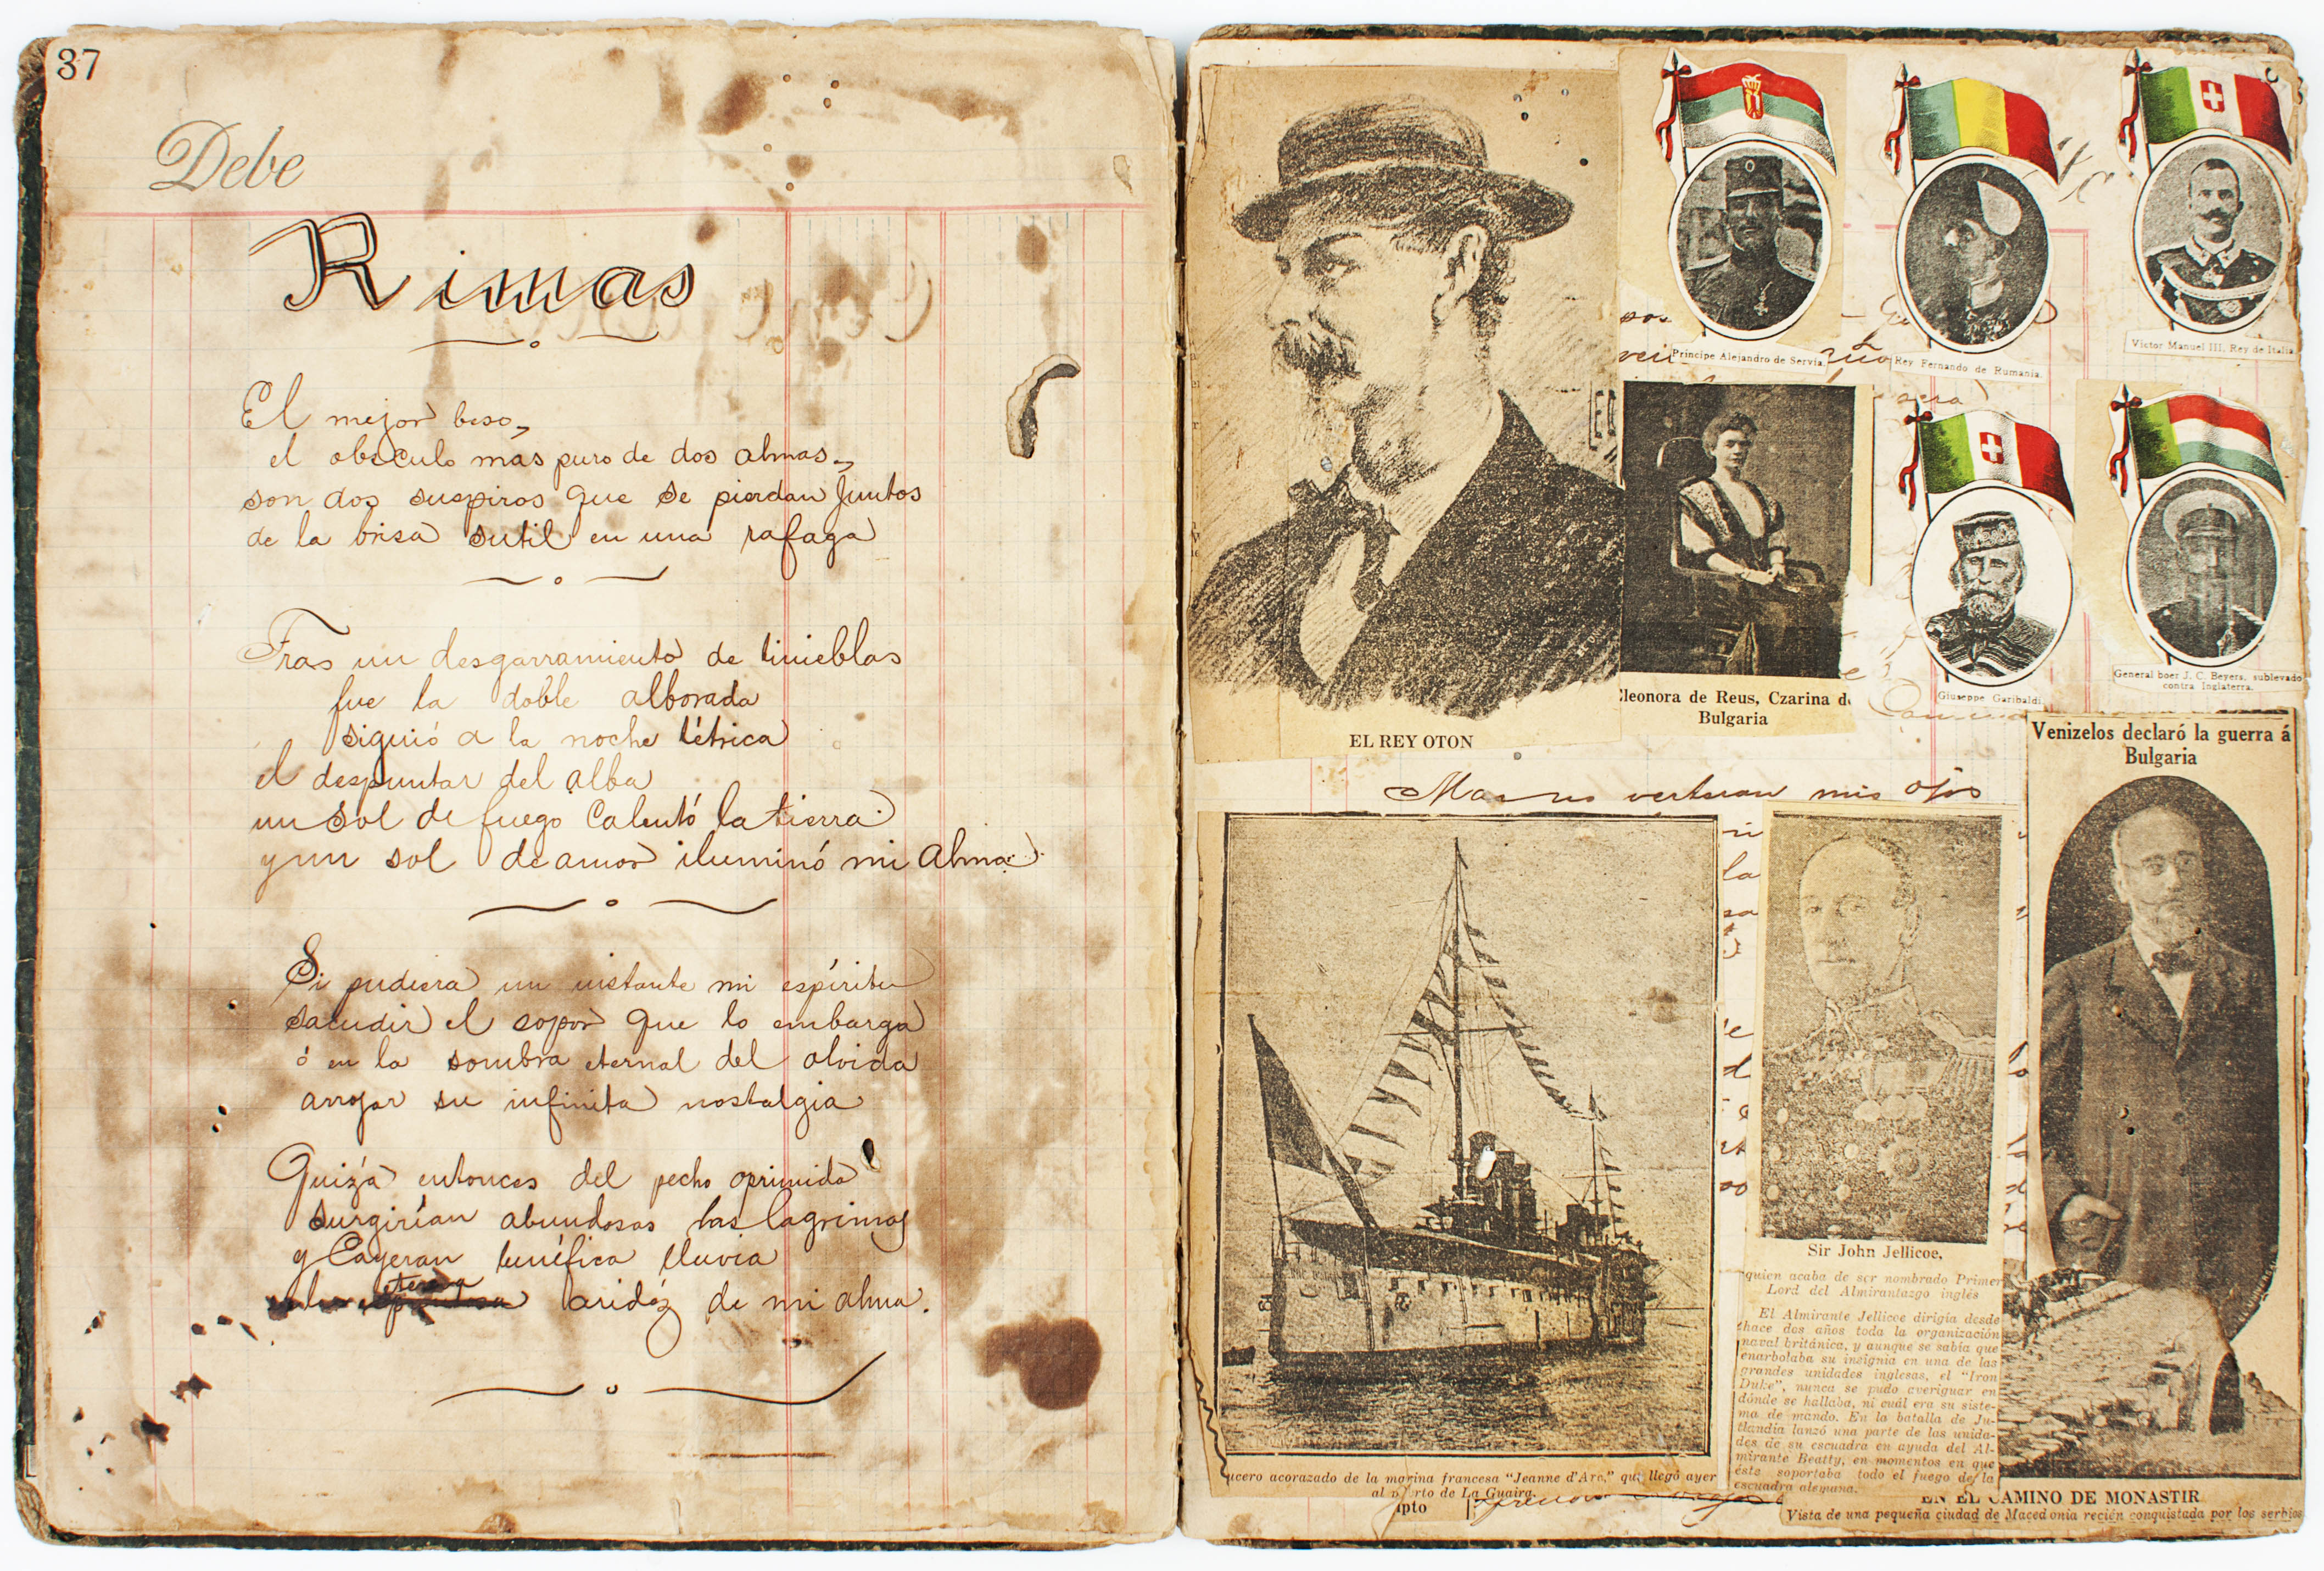 37
Debe
Rimas
El mejor beso,
el obsculo mas puro de dos almas,
son dos suspiros que se pierdan Juntos
de la brisa sutil en una rafaga
Tras un desgarramiento de tinieblas
fue la doble alborada
siguió a la noche tétrica
el despuntar del alba
un sol de fuego Calentó la tierra
y un sol de amor iluminó mi alma.
Si pudiera un instante mi espíritu
sacudir el sopor que lo embarga
ó en la sombra eternal del olvido
arrojar su infinita nostalgia
Quizá entonces del pecho oprimido
surgirían abundosas las lagrimas
y Cayeran benéfica lluvia
eterna
aridéz de mi alma.
EL REY OTON
Principe Alejandro de Servia.
Rey Fernando de Rumania.
Victor Manuel III, Rey de Italia.
Eleonora de Reus, Czarina de
Bulgaria
Giuseppe Garibaldi
General boer J. C. Beyers, sublevado
contra Inglaterra.
Venizelos declaró la guerra á
Bulgaria
Mas no vertieran mis ojos
ucero acorazado de la marina francesa "Jeanne d'Arc," que llegó ayer
al puerto de La Guaira.
ipto
Sir John Jellicoe,
quien acaba de ser nombrado Primer
Lord del Almirantazgo inglés
El Almirante Jellicoe dirigía desde
hace dos años toda la organización
naval británica, y aunque se sabía que
enarbolaba su insignia en una de las
grandes unidades inglesas, el "Iron
Duke", nunca se pudo averiguar en
dónde se hallaba, ni cuál era su siste-
ma de mando. En la batalla de Ju-
tlandia lanzó una parte de las unida-
des de su escuadra en ayuda del Al-
mirante Beatty, en momentos en que
éste soportaba todo el fuego de la
escuadra alemana.
EN EL CAMINO DE MONASTIR
Vista de una pequeña ciudad de Macedonia recién conquistada por los serbios